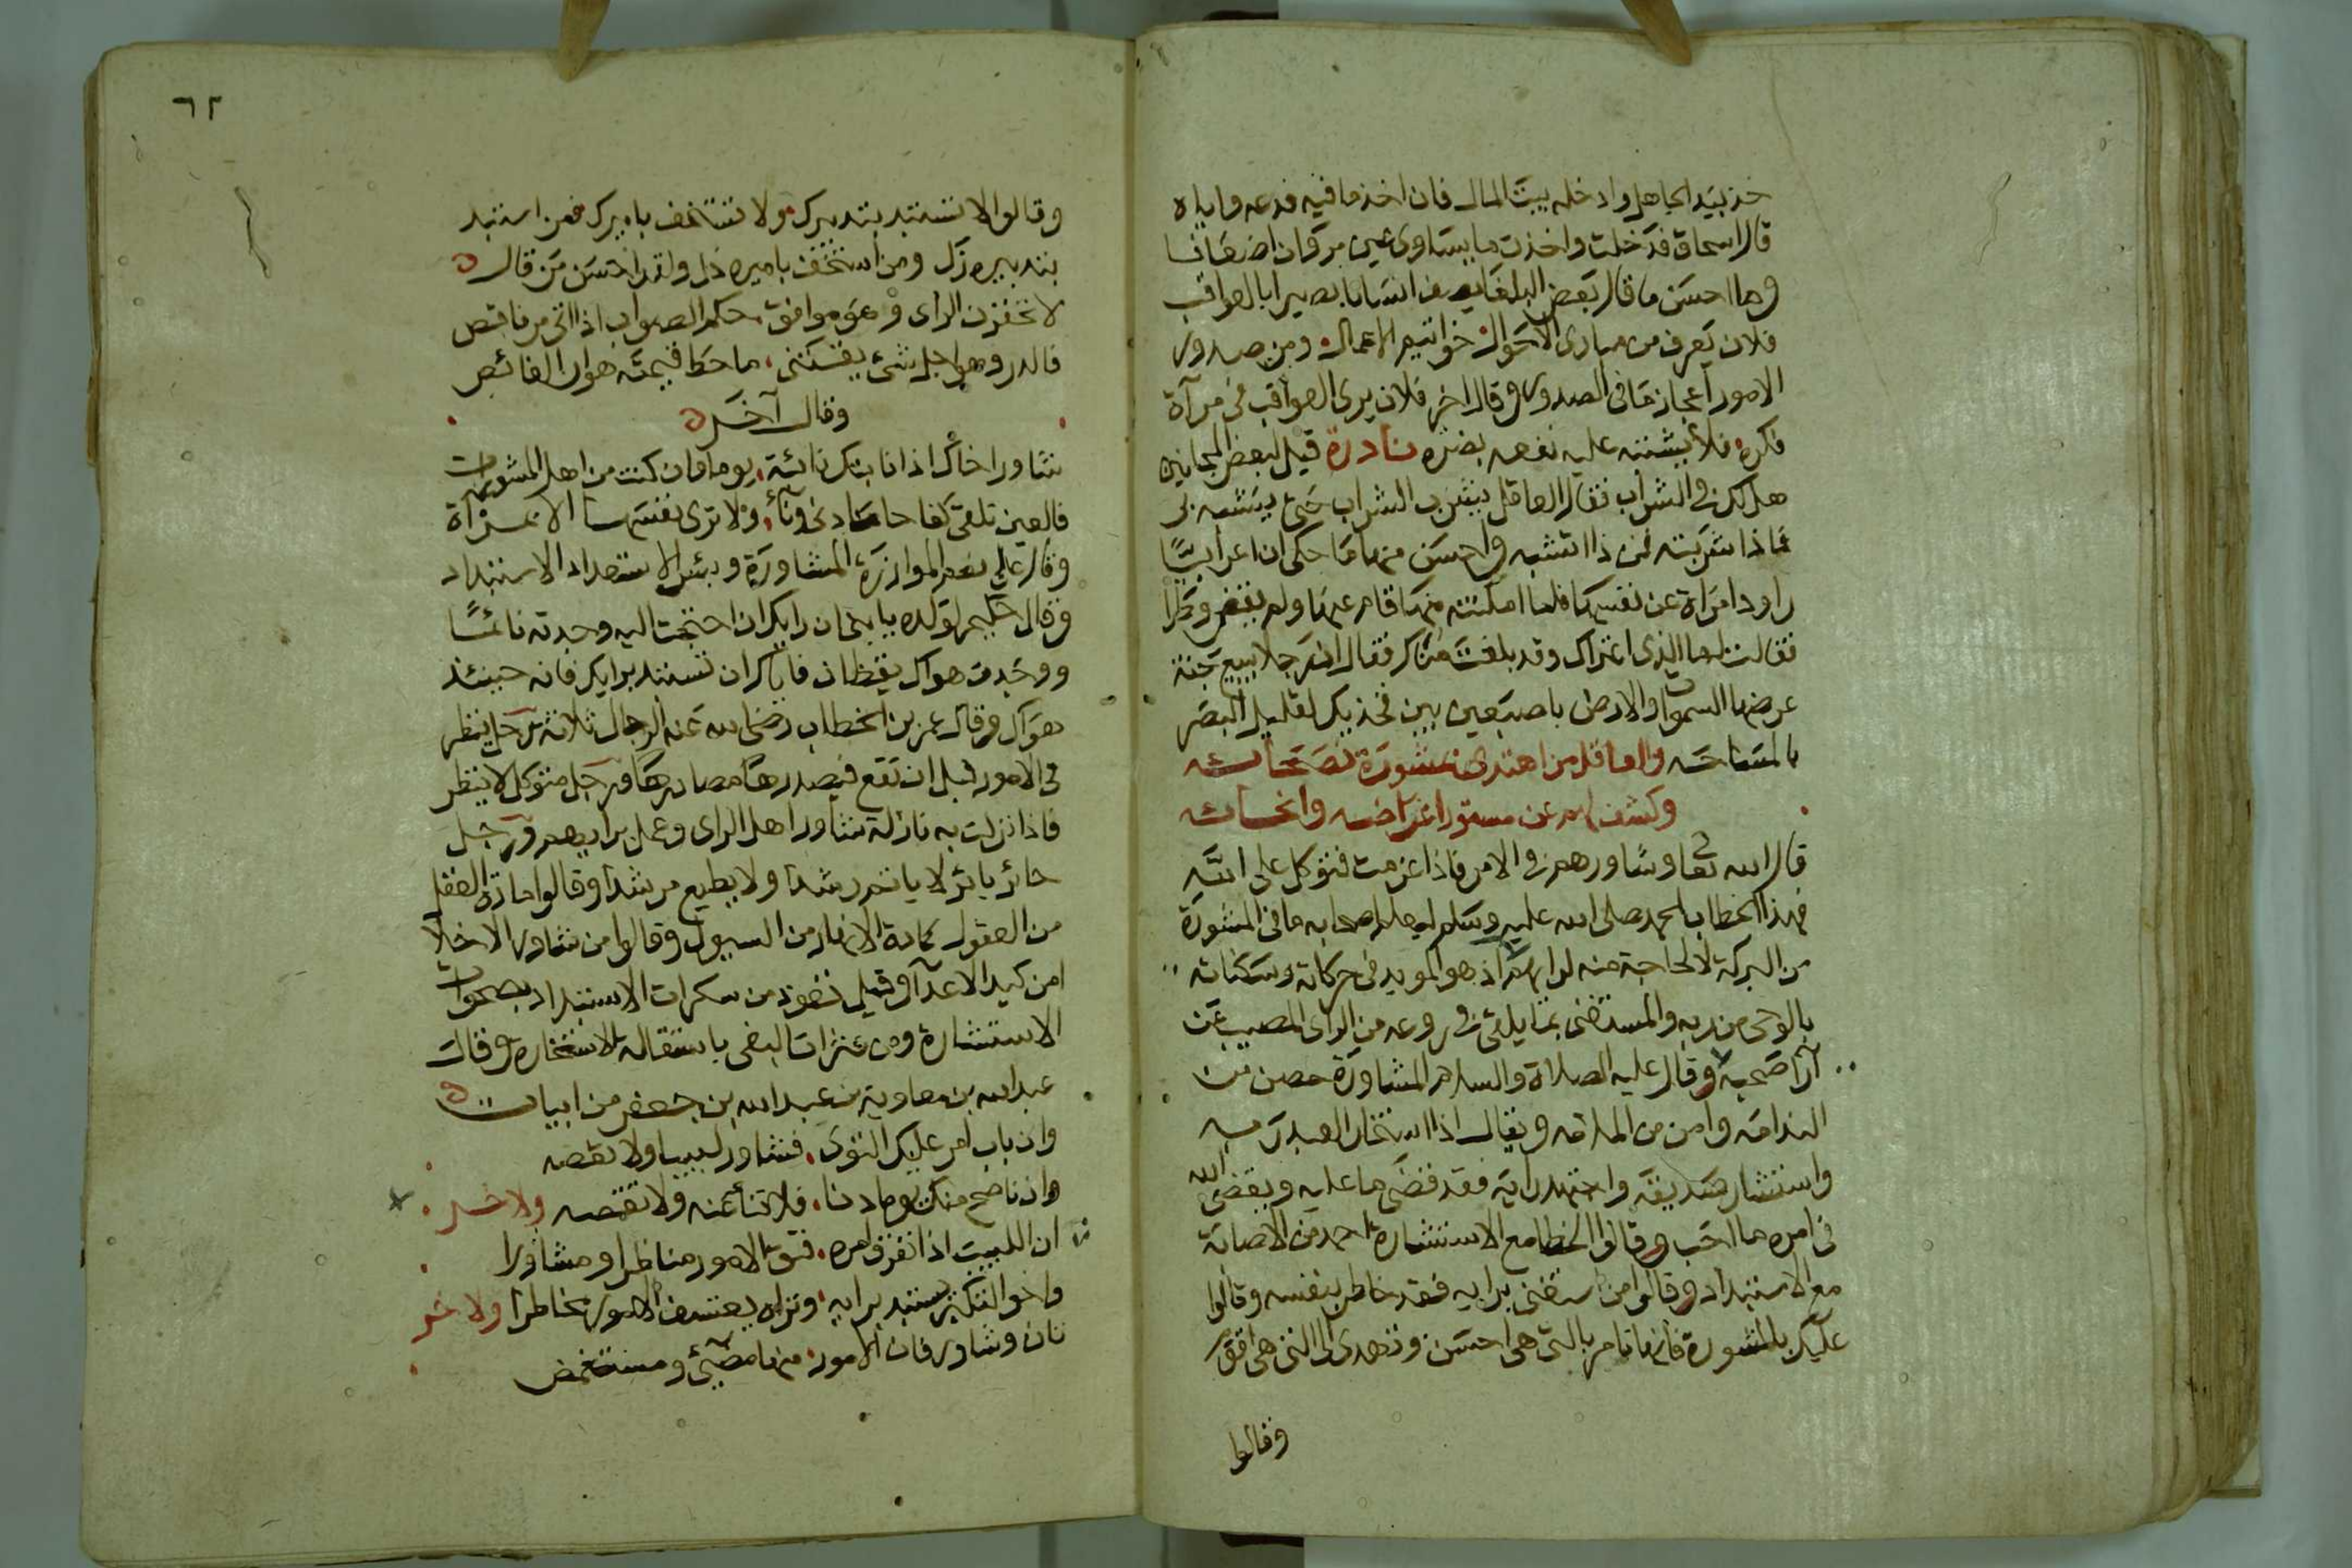 خذ بيد الجاهل وادخله بيت المال فان اخذ ما فيه فدعه واياه
قال اسحاق فدخلت واخذت ما يساوى
وما احسن ما قال بعض البلغا يصف انسانا بصيرا بالعواقب
فلان يعرف من مبادى الاحوال خواتيم الاعمال ومن صدور
الامور اعجاز ما فى الصدور وقال اخر فلان يرى العواقب فى مرآة
فكره فلا يشتبه عليه نفعه بضره نادرة قيل لبعض المجانين
هل لك فى الشراب فقال العاقل يشرب الشراب حتى يتشبه بى
فاذا شربته فمن ذا اتشبه واحسن منها ما حكى ان اعرابيا
راود امراة عن نفسها فلما امكنته منها قام عنها ولم يقض وطرا
فقالت له ما الذى اعتراك وقد بلغت مناك فقال ان رجلا يبيع جنة
عرضها السموات والارض باصبعين بين فخذيك لقليل البصر
بالمساحه والعاقل من اهتدى بمشورة نصحائه
وكشف لهم عن مستور اغراضه وانحائه
قال الله تعالى وشاورهم فى الامر فاذا عزمت فتوكل على الله
فهذا الخطاب لمحمد صلى الله عليه وسلم ليعلم اصحابه ما فى المشورة
من البركة لا لحاجة منه لرايهم اذ هو المويد فى حركاته وسكناته
بالوحى من ربه والمستغنى بما يلقى فى روعه من الراى المصيب عن
آرا صحبه وقال عليه الصلاة والسلام المشاورة حصن من
الندامه وامن من الملامه ويقال اذا استخار العبد ربه
واستشار صديقه واجتهد رايه فقد قضى ما عليه ويقضى الله
فى امره ما احب وقالوا الخطا مع الاستشارة احمد من الاصابة
مع الاستبداد وقالوا من استغنى برايه فقد خاطر بنفسه وقالوا
عليك بالمشورة فانها تامر بالتى هى احسن وتهدى الى التى هى اقوم
وقالوا
٦٢
وقالوا لا تستبد بتدبيرك ولا تستخف باميرك فمن استبد
بتدبيره زل ومن استخف باميره ذل ولقد احسن من قال
لا تحقرن الراى وهو موافق حكم الصواب اذا اتى من ناقص
فالدر وهو اجل شئ يقتنى ما حط قيمته هوان الغائص
وقال آخر
شاور اخاك اذا نابتك نائبة يوما وان كنت من اهل المشورات
فالعين تلقى كفاحا ما دنى ونأى ولا ترى نفسها الا بمرآة
وقال على نعم الموازرة المشاورة وبئس الاستعداد الاستبداد
وقال حكيم لولده يا بنى ان رايك ان احتجت اليه وجدته نائما
ووجدت هواك يقظان فاياك ان تستبد برايك فانه حينئذ
هواك وقال عمر بن الخطاب رضى الله عنه الرجال ثلاثة رجل ينظر
فى الامور قبل ان تقع فيصدرها مصادرها ورجل متوكل لا ينظر
فاذا نزلت به نازلة شاور اهل الراى وعمل برايهم ورجل
حائر بائر لا ياتمر رشدا ولا يطيع مرشدا وقالوا مادة العقل
من العقول كمادة الانهار من السيول وقالوا من شاور الاخلا
امن كيد الاعدا وقيل نعوذ من سكرات الاستبداد بصحوات
الاستشارة ومن عثرات البغى باستقالة الاستخارة وقال
عبد الله بن معاوية بن عبد الله بن جعفر من ابيات
وان باب امر عليك التوى فشاور لبيبا ولا تعصه
وان ناصح منك يوما دنا فلا تنأ عنه ولا تقصه ولاخر
ان اللبيب اذا تفرق امره فتق الامور مناظرا ومشاورا
واخو التكبر يستبد برايه وتراه يعتسف الامور مخاطرا ولاخر
تان وشاور فان الامور منها مضئ ومستغمض